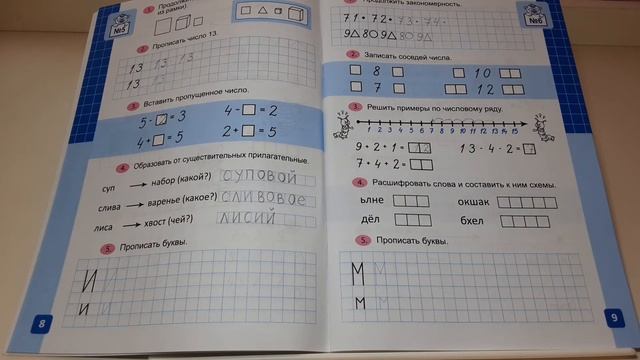 №5
1. Продолжи
из рамки).
2. Прописать число 13.
13 13 13
13 13
3. Вставить пропущенное число.
5 - 2 = 3
4 - □ = 2
4 + □ = 5
2 + □ = 5
4. Образовать от существительных прилагательные.
суп → набор (какой?) СУПОВОЙ
слива → варенье (какое?) СЛИВОВОЕ
лиса → хвост (чей?) ЛИСИЙ
5. Прописать буквы.
И И
и и
8
№6
Продолжить закономерность.
71 • 72 • 73 • 74 •
9△8О9△8О9△
2. Записать соседей числа.
□ 8 □
□ 10 □□
□ 7 □
□□ 12 □□
3. Решить примеры по числовому ряду.
1 2 3 4 5 6 7 8 9 10 11 12 13 14 15
9 + 2 + 1 = 12
13 - 4 - 2 = 7
7 + 4 + 2 = □□
4. Расшифровать слова и составить к ним схемы.
ьлне
окшак
дёл
бхел
5. Прописать буквы.
М М
м м
9